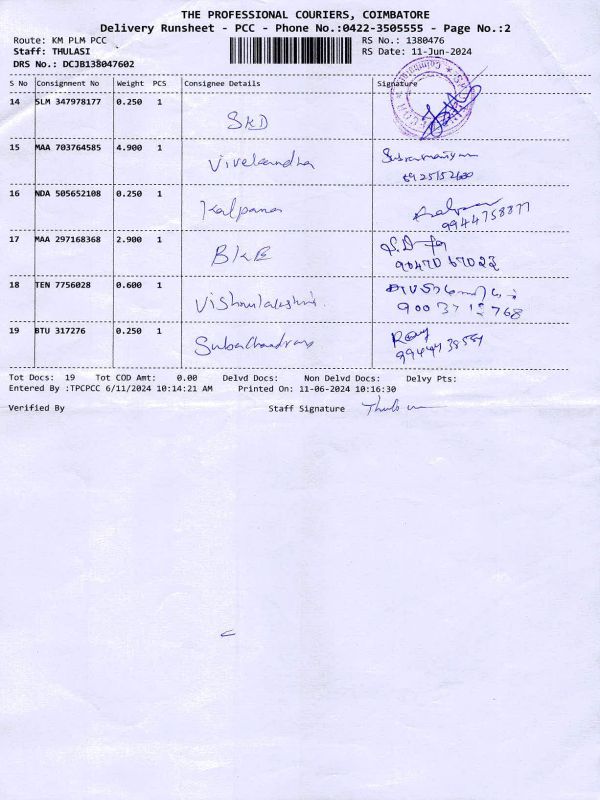 THE PROFESSIONAL COURIERS, COIMBATORE
Delivery Runsheet - PCC - Phone No.:0422-3505555 - Page No.:2
Route: KM PLM PCC
RS No.: 1380476
Staff: THULASI
RS Date: 11-Jun-2024
DRS No.: DCJB138047602
S No Consignment No Weight PCS Consignee Details Signature
14 SLM 347978177 0.250 1 SKD
15 MAA 703764585 4.900 1 Vivekandha
16 NDA 505652108 0.250 1 Kalpana
9944758877
17 MAA 297168368 2.900 1 BKE
18 TEN 7756028 0.600 1
9003712768
19 BTU 317276 0.250 1
Tot Docs: 19 Tot COD Amt: 0.00 Delvd Docs: Non Delvd Docs: Delvy Pts:
Entered By :TPCPCC 6/11/2024 10:14:21 AM Printed On: 11-06-2024 10:16:30
Verified By Staff Signature